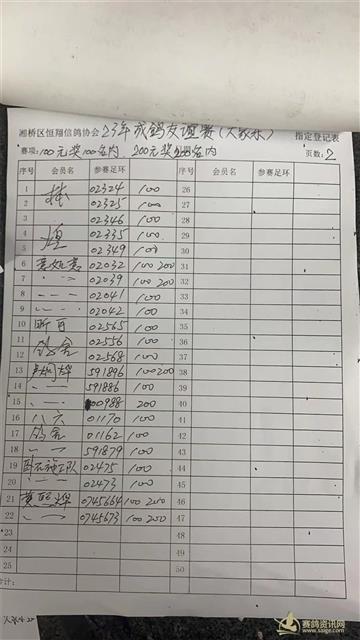 湘桥区恒翔信鸽协会23年成鸽友谊赛(大家乐) 指定登记表
赛项:100元奖100名内 200元奖 名内 页数:2
序号 会员名 参赛足环 序号 会员名 参赛足环
1 02324 100 26
2 02325 100 27
3 02346 100 28
4 煌 02335 100 29
5 02349 100 30
6 02032 100 200 31
7 〃 02039 100 200 32
8 — — — 02041 100 33
9 02042 100 34
10 昕可 02565 100 35
11 鸽舍 02556 100 36
12 02568 100 37
13 591896 100 200 38
14 591886 100 39
15 00988 200 40
16 八六 01170 100 41
17 鸽舍 01162 100 42
18 591879 100 43
19 02475 100 44
20 02473 100 45
21 黄照辉 0745664 100 200 46
22 0745673 100 200 47
23 48
24 49
25 50
合计:
赛鸽资讯网
www.saige.com